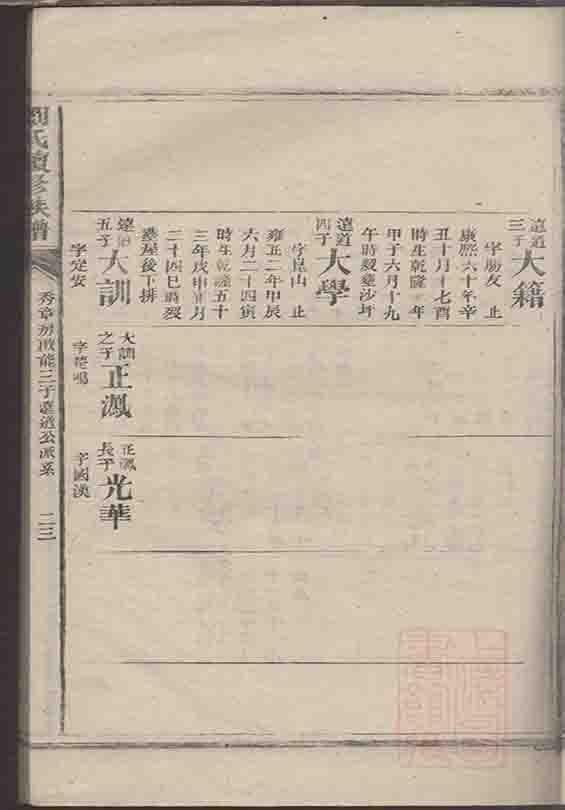 遠道三子
大籍
字勝友 止
康熙六十年辛
丑十月十七酉
時生乾隆 年
甲子六月十九
午時歿塟沙坪
遠道四子
大學
字崑山 止
雍正二年甲辰
六月二十四寅
時生乾隆五十
三年戊申正月
二十四巳時歿
塟屋後下排
遠道五子
大訓
字定安
大訓之子
正鳳
字
正鳳長子
光華
字國漢
劉氏續修族譜
秀章房 能三子遠道公派系
二三